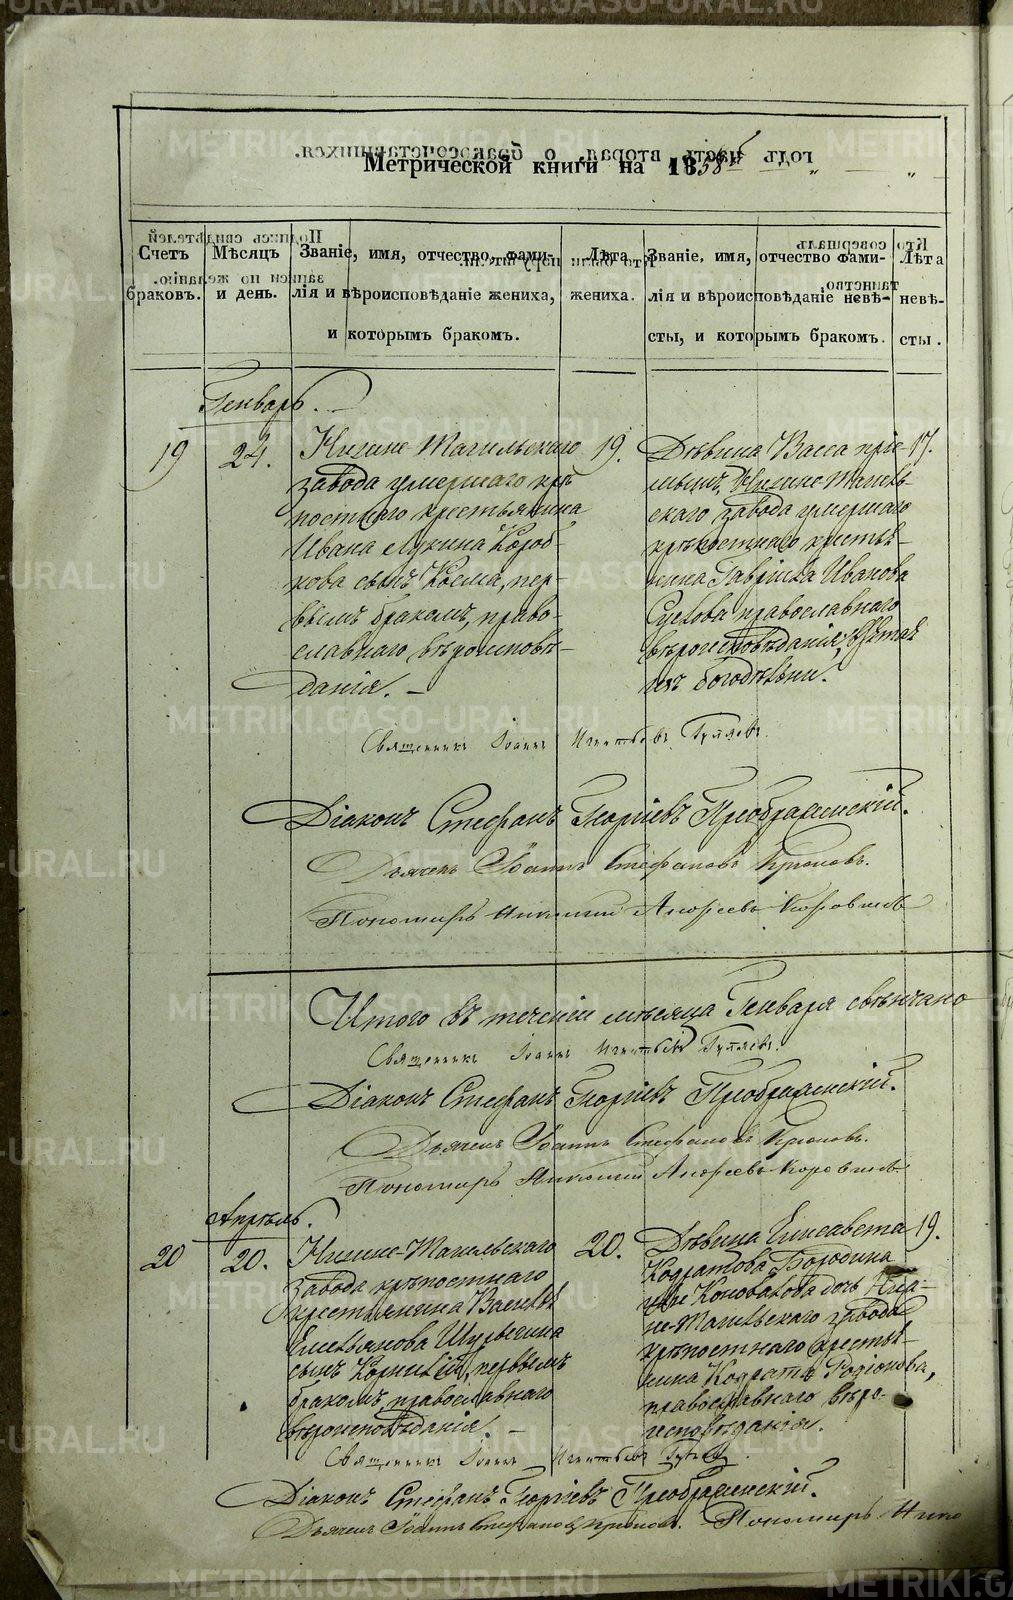 METRIKI.GASO-URAL.RU
Метрической книги на 1858й
Счетъ браковъ.
Мѣсяцъ и день.
Званіе, имя, отчество, фами-
лія и вѣроисповѣданіе жениха,
и которымъ бракомъ.
Лѣта
жениха.
Званіе, имя, отчество фами-
лія и вѣроисповѣданіе невѣ-
сты, и которымъ бракомъ.
Лѣта
невѣ-
сты.
Генварь.
19
24.
Нижне-Тагильскаго
завода умершаго крѣ
постнаго крестьянина
Ивана Лукина Короб-
кова сынъ Козма, пер-
вымъ бракомъ, право-
славнаго вѣроисповѣ-
данія.
19.
Дѣвица Васса пріе-
мышъ, Нижне Тагиль-
скаго завода умершаго
крѣпостнаго крестья-
нина Гавріила Иванова
православнаго
вѣроисповѣданія, взятая
изъ богодѣльни.
17.
Священникъ Іоаннъ Игнатьевъ
Діаконъ Стефанъ Георгіевъ Преображенскій.
Дьячекъ Іоаннъ Стефановъ
Пономарь Николай Андреевъ
Итого въ теченіи мѣсяца Генваря свѣнчано
Священникъ Іоаннъ Игнатьевъ
Діаконъ Стефанъ Георгіевъ Преображенскій.
Дьячекъ Іоаннъ Стефановъ
Пономарь Николай Андреевъ
Апрѣль.
20
20.
Нижне-Тагильскаго
завода крѣпостнаго
крестьянина Василія
Емельянова
сынъ Корнилій, первымъ
бракомъ, православнаго
вѣроисповѣданія.
20.
Дѣвица Елисавета
Кодратова Бородина
Коновалова дочь Ниж-
не-Тагильскаго завода
крѣпостнаго крестья-
нина Кодрата Родіонова,
православнаго вѣро-
исповѣданія.
19.
Священникъ Іоаннъ Игнатьевъ
Діаконъ Стефанъ Георгіевъ Преображенскій.
Дьячекъ Іоаннъ Стефановъ Пономарь Нико